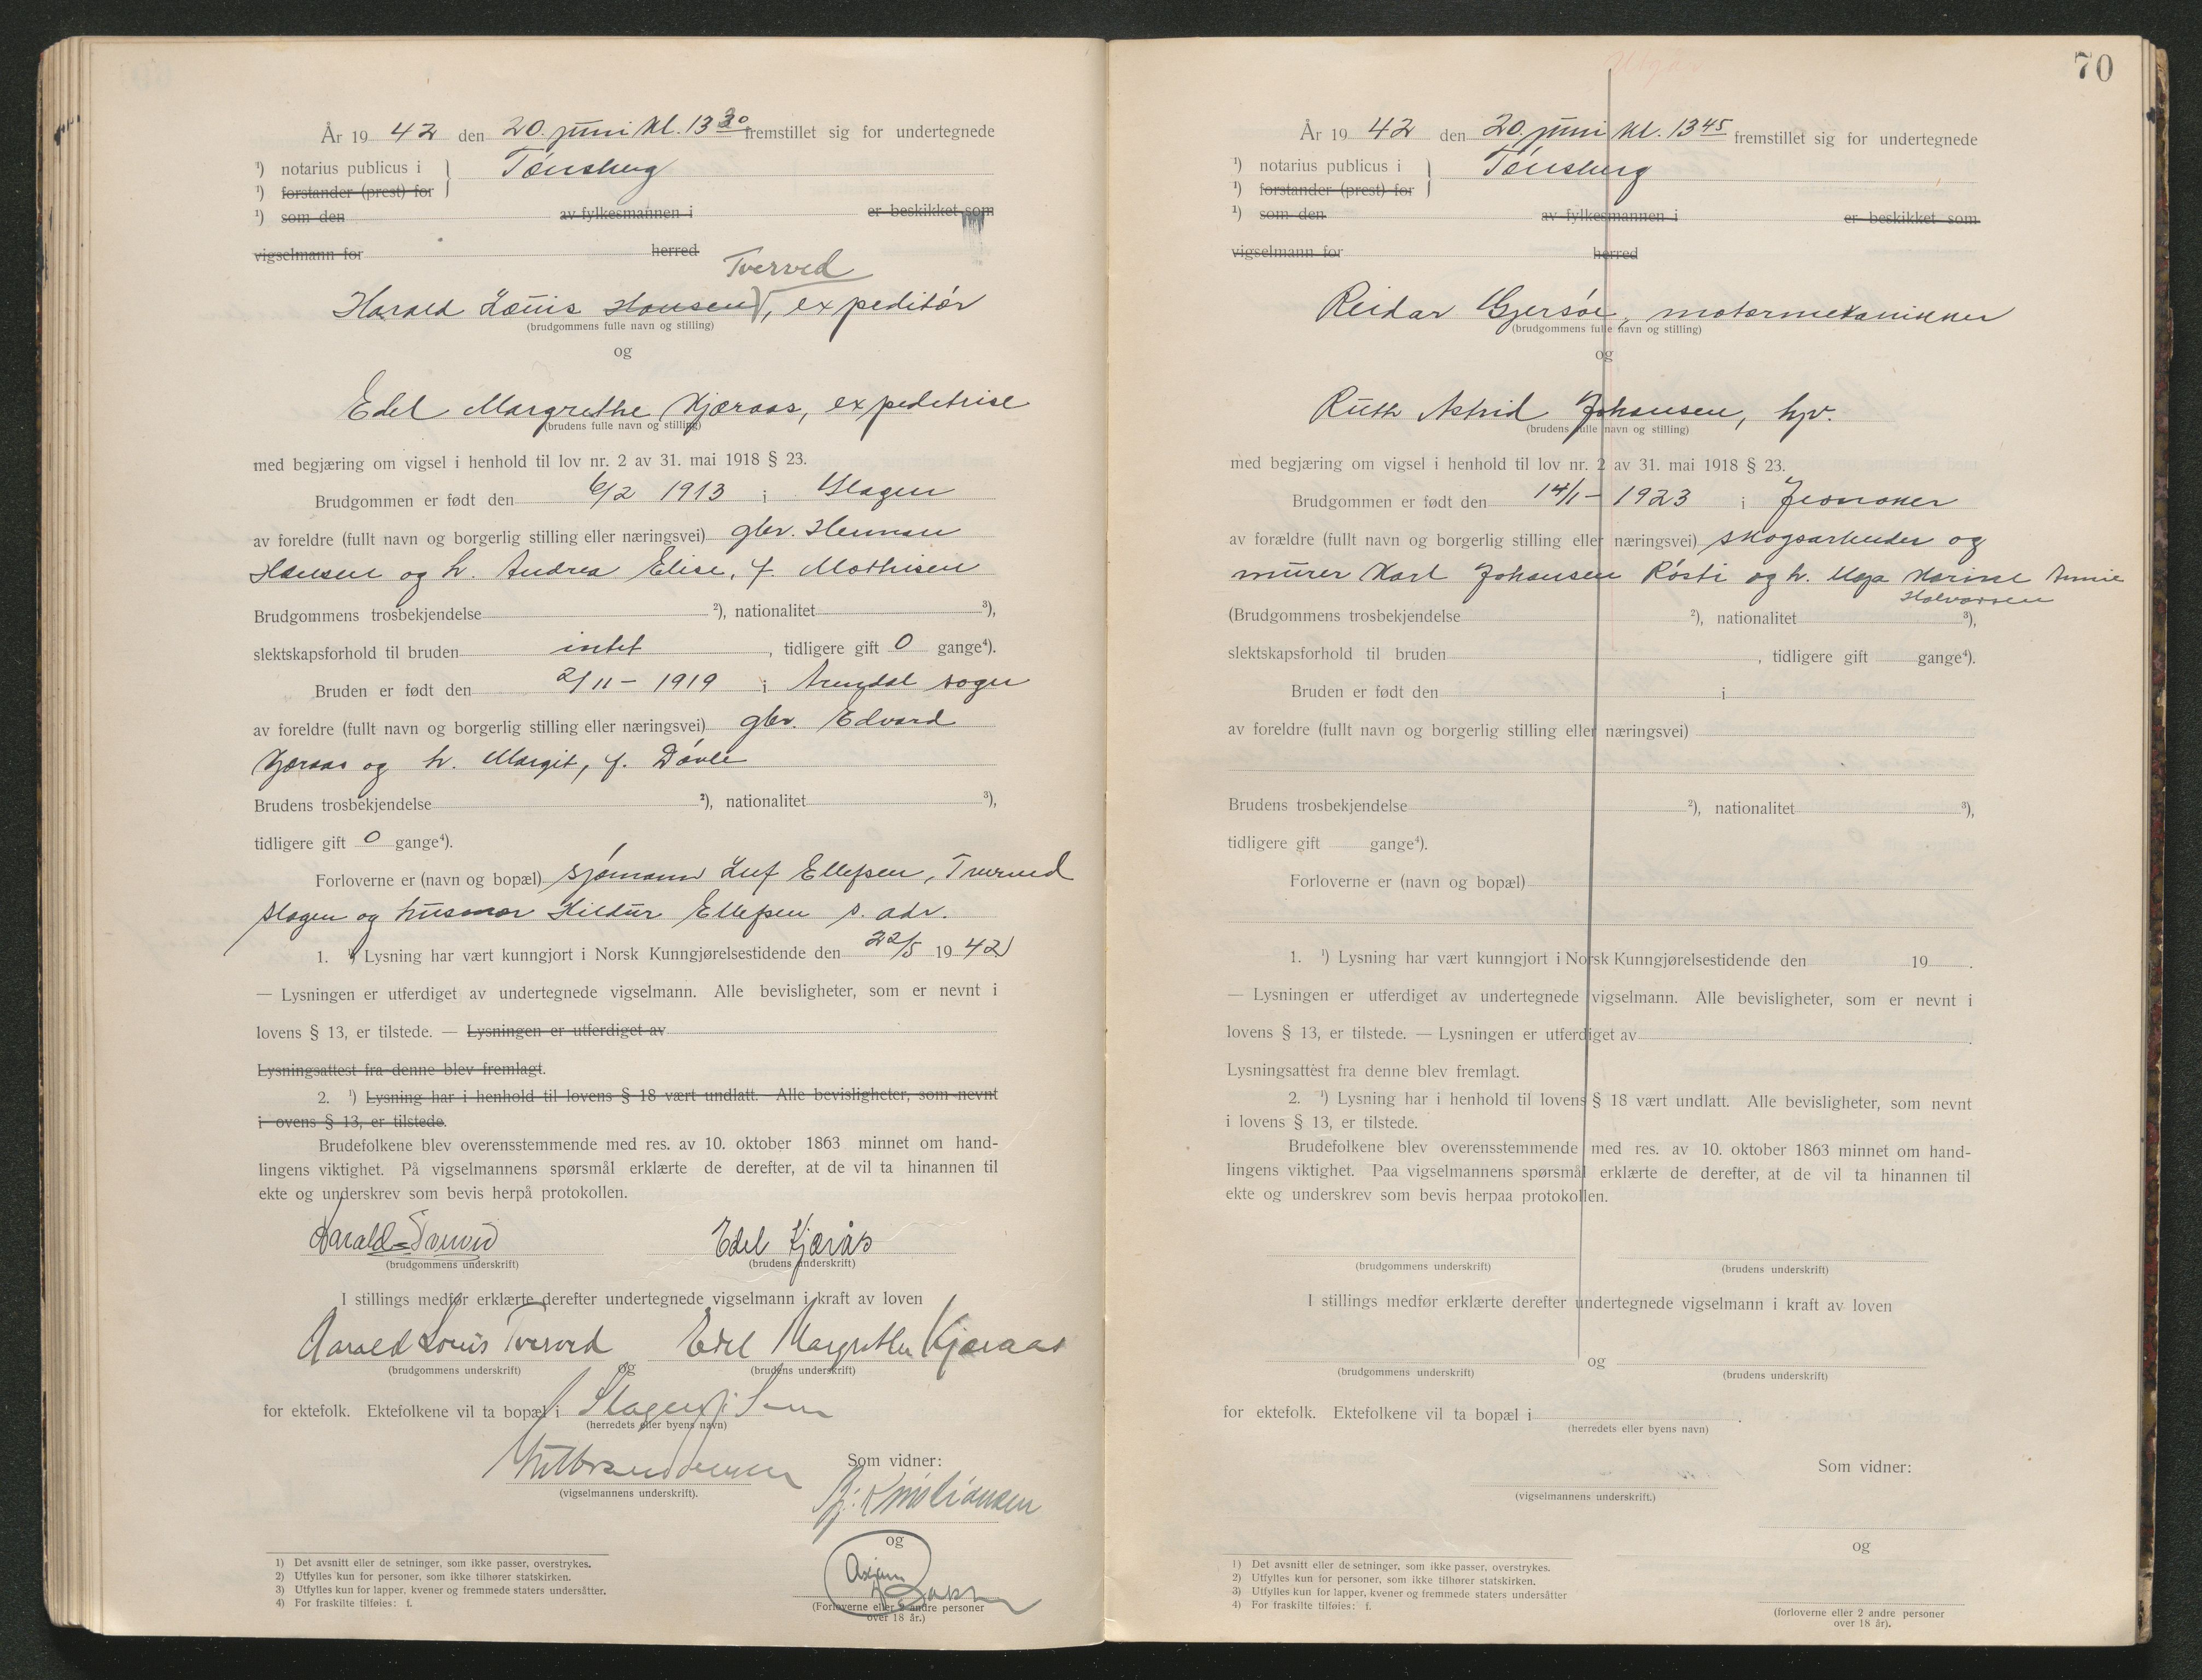 År 19 42 den 20. juni kl. 13 30 fremstillet sig for undertegnede
¹) notarius publicus i } Tønsberg
¹) forstander (prest) for
¹) som den av fylkesmannen i er beskikket som
vigselmann for herred
Tverved
Harald Louis Hansen, expeditør
(brudgommens fulle navn og stilling)
og
Edel Margrethe Kjæraas, expeditrise
(brudens fulle navn og stilling)
med begjæring om vigsel i henhold til lov nr. 2 av 31. mai 1918 § 23.
Brudgommen er født den 6/2 1913 i Slagen
av foreldre (fullt navn og borgerlig stilling eller næringsvei) gbr. Herman
Hansen og h. Andrea Elise, f. Mathisen
Brudgommens trosbekjendelse ²), nationalitet ³),
slektskapsforhold til bruden intet, tidligere gift 0 gange⁴).
Bruden er født den 2/11 - 1919 i Arendal sogn
av foreldre (fullt navn og borgerlig stilling eller næringsvei) gbr. Edvard
Kjæraas og h. Margit, f. Døvle
Brudens trosbekjendelse ²), nationalitet ³),
tidligere gift 0 gange⁴).
Forloverne er (navn og bopæl) sjømann Leif Ellefsen, Tverved
Slagen og husmor Hildur Ellefsen s. adr.
1. ¹) Lysning har vært kunngjort i Norsk Kunngjørelsestidende den 22/5 19 42
— Lysningen er utferdiget av undertegnede vigselmann. Alle bevisligheter, som er nevnt i
lovens § 13, er tilstede. — Lysningen er utferdiget av
Lysningsattest fra denne blev fremlagt.
2. ¹) Lysning har i henhold til lovens § 18 vært undlatt. Alle bevisligheter, som nevnt
i ovens § 13, er tilstede.
Brudefolkene blev overensstemmende med res. av 10. oktober 1863 minnet om hand-
lingens viktighet. På vigselmannens spørsmål erklærte de derefter, at de vil ta hinannen til
ekte og underskrev som bevis herpå protokollen.
Harald Tverved Edel Kjærås
(brudgommens underskrift) (brudens underskrift)
I stillings medfør erklærte derefter undertegnede vigselmann i kraft av loven
Harald Louis Tverved Edel Margrethe Kjæraas
(brudgommens underskrift) og (brudens underskrift)
for ektefolk. Ektefolkene vil ta bopæl i Slagen i Sem
(herredets eller byens navn)
Som vidner:
(vigselmannens underskrift).
Bj. Kristiansen
og
(Forloverne eller 2 andre personer
over 18 år.)
1) Det avsnitt eller de setninger, som ikke passer, overstrykes.
2) Utfylles kun for personer, som ikke tilhører statskirken.
3) Utfylles kun for lapper, kvener og fremmede staters undersåtter.
4) For fraskilte tilføies: f.
Utgår
70
År 19 42 den 20. juni kl. 13 45 fremstillet sig for undertegnede
¹) notarius publicus i } Tønsberg
¹) forstander (prest) for
¹) som den av fylkesmannen i er beskikket som
vigselmann for herred
Reidar Gjersøe, motormekaniker
(brudgommens fulle navn og stilling)
og
Ruth Astrid Johansen, hjv.
(brudens fulle navn og stilling)
med begjæring om vigsel i henhold til lov nr. 2 av 31. mai 1918 § 23.
Brudgommen er født den 14/1 - 1923 i
av forældre (fullt navn og borgerlig stilling eller næringsvei) skogsarbeider og
murer Karl Johansen Røsti og h. Maja Karine Annie
Halvorsen
(Brudgommens trosbekjendelse ²), nationalitet ³),
slektskapsforhold til bruden , tidligere gift gange⁴).
Bruden er født den i
av foreldre (fullt navn og borgerlig stilling eller næringsvei)
Brudens trosbekjendelse ²), nationalitet ³),
tidligere gift gange⁴).
Forloverne er (navn og bopæl)
1. ¹) Lysning har vært kunngjort i Norsk Kunngjørelsestidende den 19 .
— Lysningen er utferdiget av undertegnede vigselmann. Alle bevisligheter, som er nevnt i
lovens § 13, er tilstede. — Lysningen er utferdiget av .
Lysningsattest fra denne blev fremlagt.
2. ¹) Lysning har i henhold til lovens § 18 vært undlatt. Alle bevisligheter, som nevnt
i lovens § 13, er tilstede.
Brudefolkene blev overensstemmende med res. av 10. oktober 1863 minnet om hand-
lingens viktighet. Paa vigselmannens spørsmål erklærte de derefter, at de vil ta hinannen til
ekte og underskrev som bevis herpaa protokollen.
(brudgommens underskrift) (brudens underskrift)
I stillings medfør erklærte derefter undertegnede vigselmann i kraft av loven
og
(brudgommens underskrift) (brudens underskrift)
for ektefolk. Ektefolkene vil ta bopæl i .
(herredets eller byens navn)
Som vidner:
(vigselmannens underskrift.)
og
(forloverne eller 2 andre personer
over 18 år).
1) Det avsnitt eller de setninger, som ikke passer, overstrykes.
2) Utfylles kun for personer, som ikke tilhører statskirken.
3) Utfylles kun for lapper, kvener og fremmede staters undersåtter
4) For fraskilte tilføies: f.